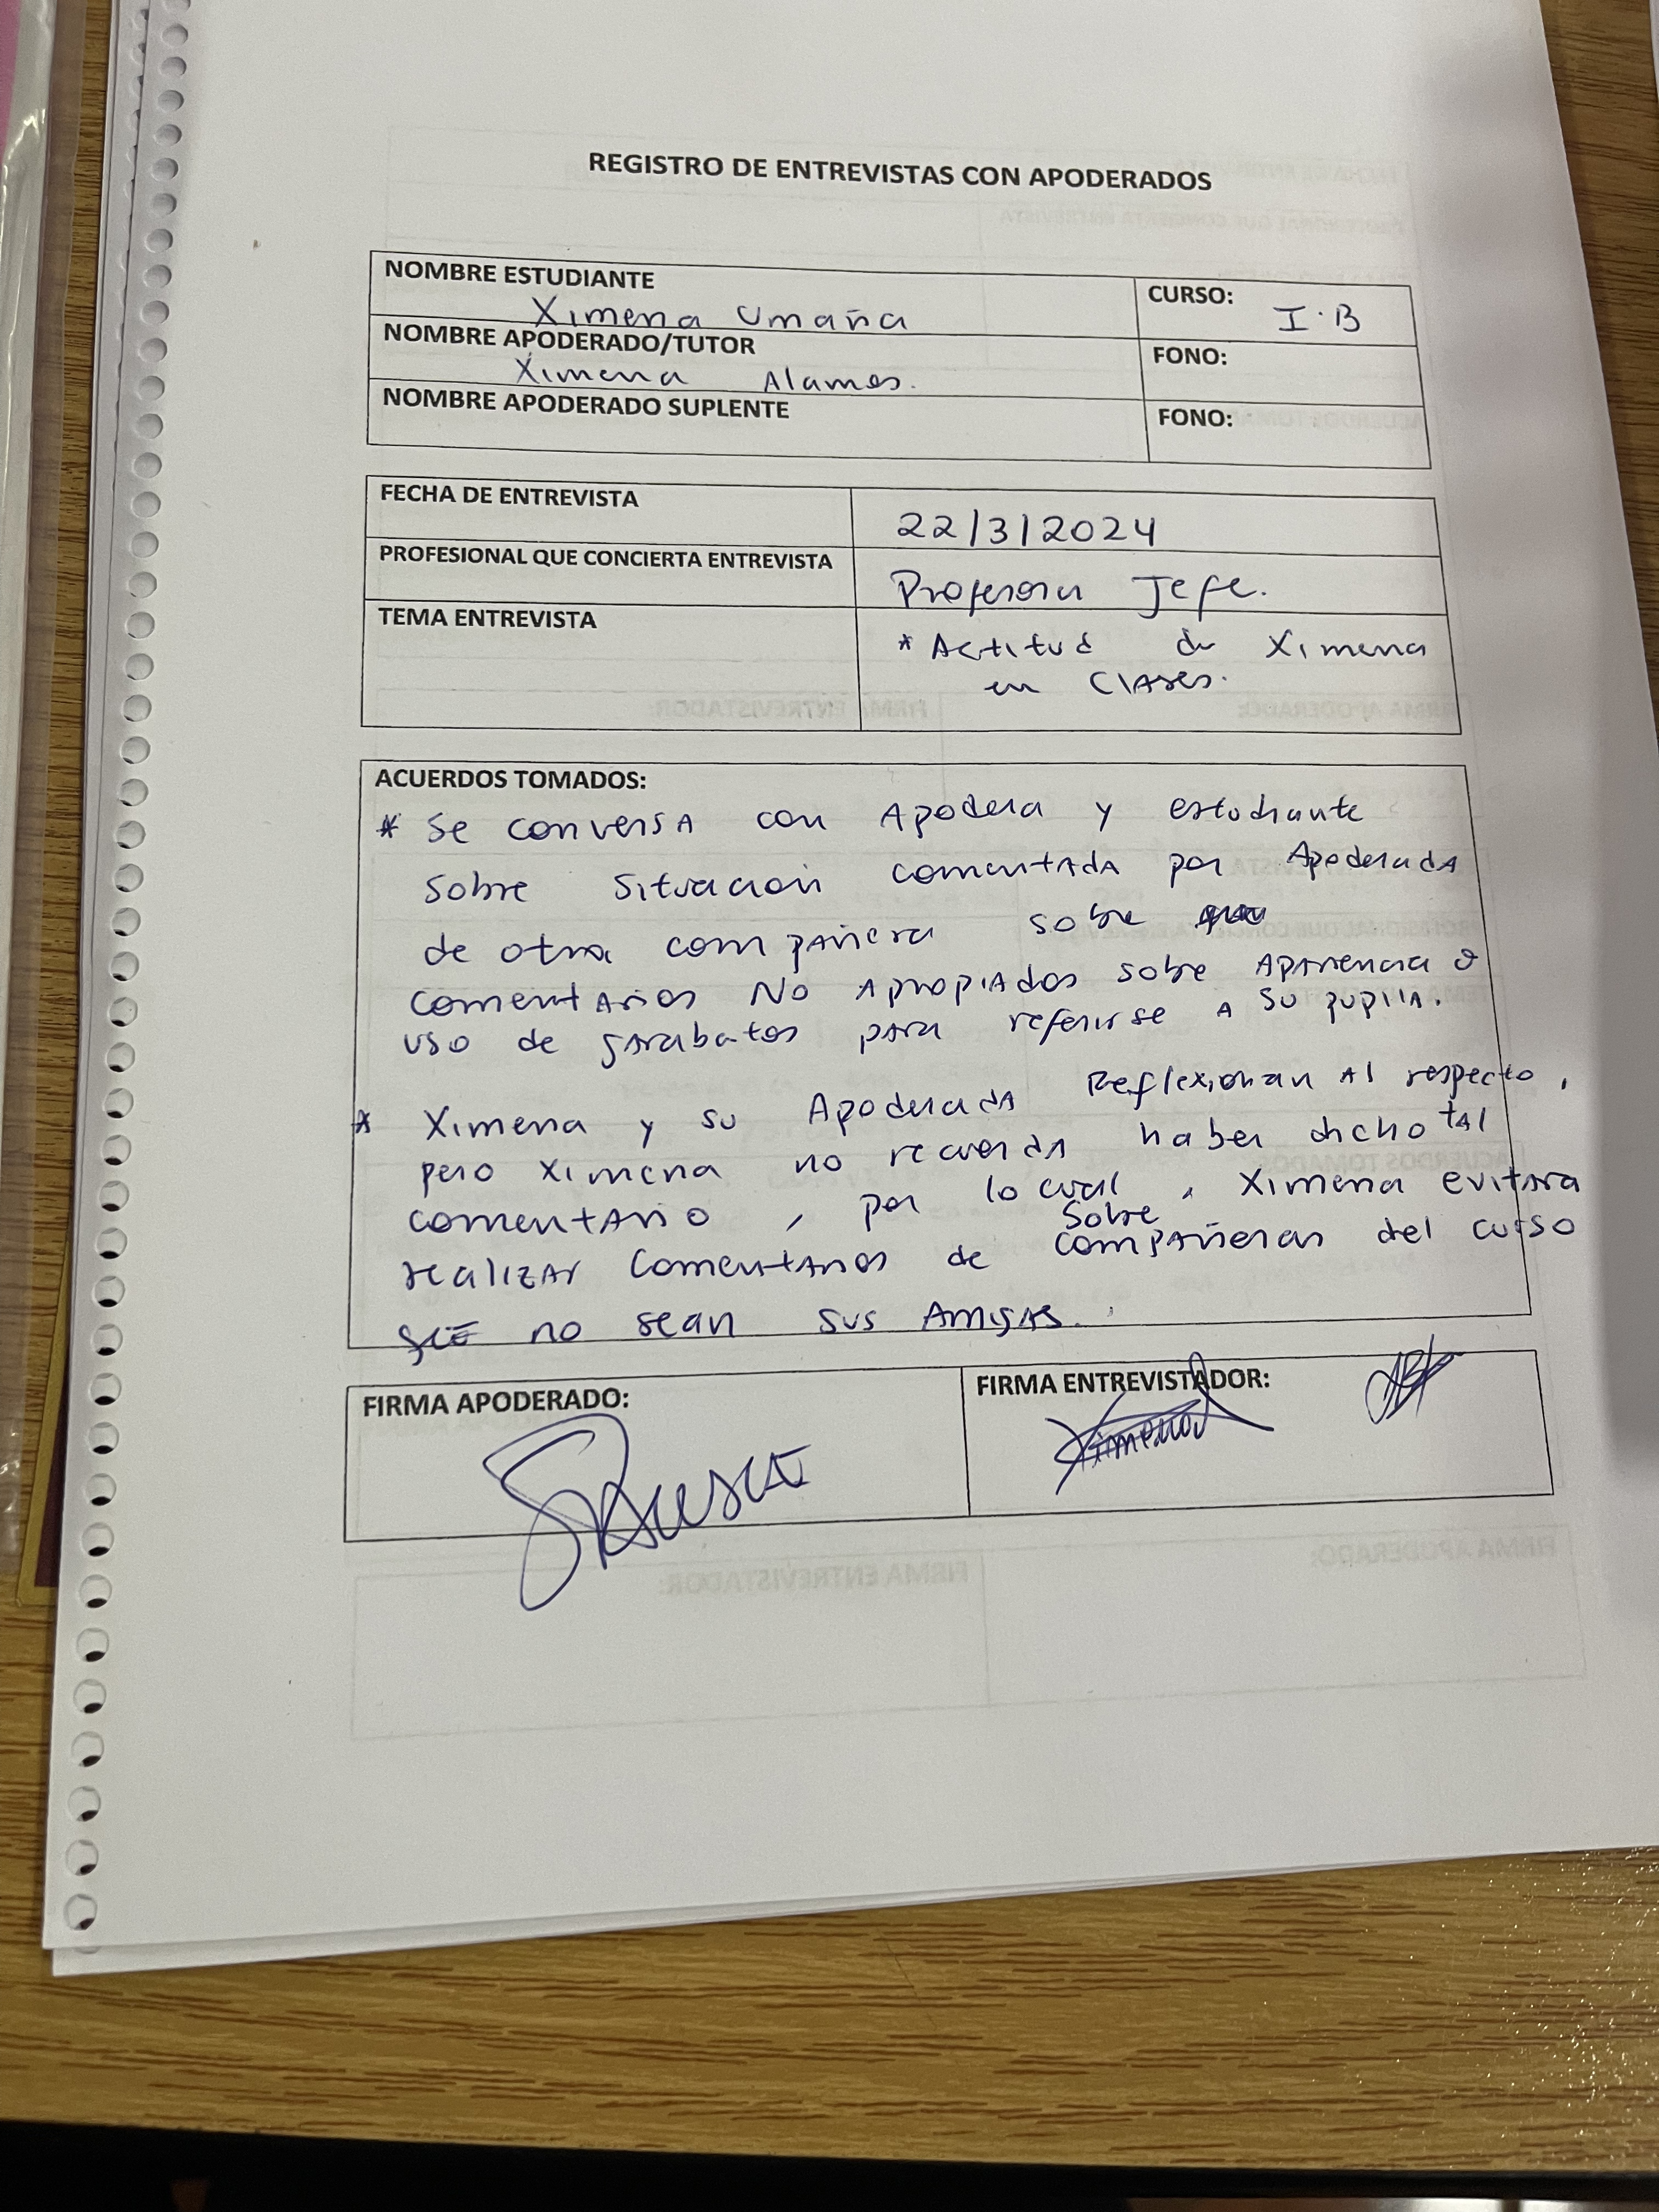 REGISTRO DE ENTREVISTAS CON APODERADOS
NOMBRE ESTUDIANTE
Ximena Umaña
CURSO: I·B
NOMBRE APODERADO/TUTOR
Ximena Alamos.
FONO:
NOMBRE APODERADO SUPLENTE
FONO:
FECHA DE ENTREVISTA
22/3/2024
PROFESIONAL QUE CONCIERTA ENTREVISTA
Profesora Jefe.
TEMA ENTREVISTA
* Actitud de Ximena
en Clases.
ACUERDOS TOMADOS:
* Se conversa con Apodera y estudiante
sobre situación comentada por Apoderada
de otra compañera sobre
comentarios No apropiados sobre apariencia o
uso de garabatos para referirse a su pupila.
* Ximena y su Apoderada Reflexionan al respecto,
pero Ximena no recuerda haber dicho tal
comentario, por lo cual, Ximena evitara
realizar comentarios de sobre compañeras del curso
que no sean sus Amigas.
FIRMA APODERADO:
FIRMA ENTREVISTADOR:
Ximena